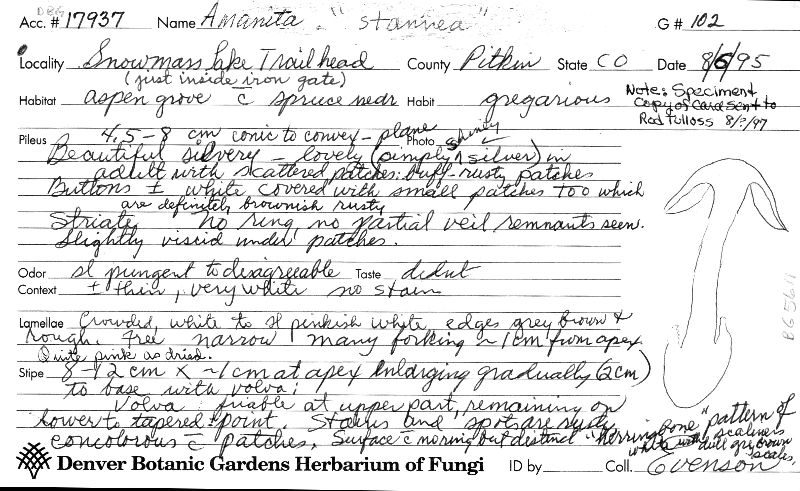 DBG
Acc. # 17937 Name Amanita "stannea" G# 102
Locality Snowmass Lake Trailhead County Pitkin State CO Date 8/6/95
(just inside iron gate)
Habitat aspen grove c̄ spruce near Habit gregarious
Note: Speciment
Copy of Card sent to
Rod Tulloss 8/?/97
Pileus 4.5-8 cm conic to convex - plane Photo ✓
Beautiful silvery - lovely (simply ^ shiney silver) in
adult with scattered patches: buff-rusty patches
Buttons ± white covered with small patches too which
are definitely brownish rusty
Striate no ring, no partial veil remnants seen.
Slightly viscid under patches.
Odor sl pungent to disagreeable Taste didnt
Context ± thin, very white no stain
Lamellae Crowded, white to sl pinkish white, edges grey brown &
rough. Free narrow many forking ~1cm from apex
Quite pink as dried.
Stipe 8-12 cm x ~1cm at apex enlarging gradually (2cm)
to base with volva;
Volva friable at upper part, remaining on
lower to tapered point. Stains and spots are rusty
concolorous c̄ patches. Surface c̄ distinct "herringbone" pattern of
white with dull grey brown scales.
DBG 5611
Denver Botanic Gardens Herbarium of Fungi ID by Coll. Evenson